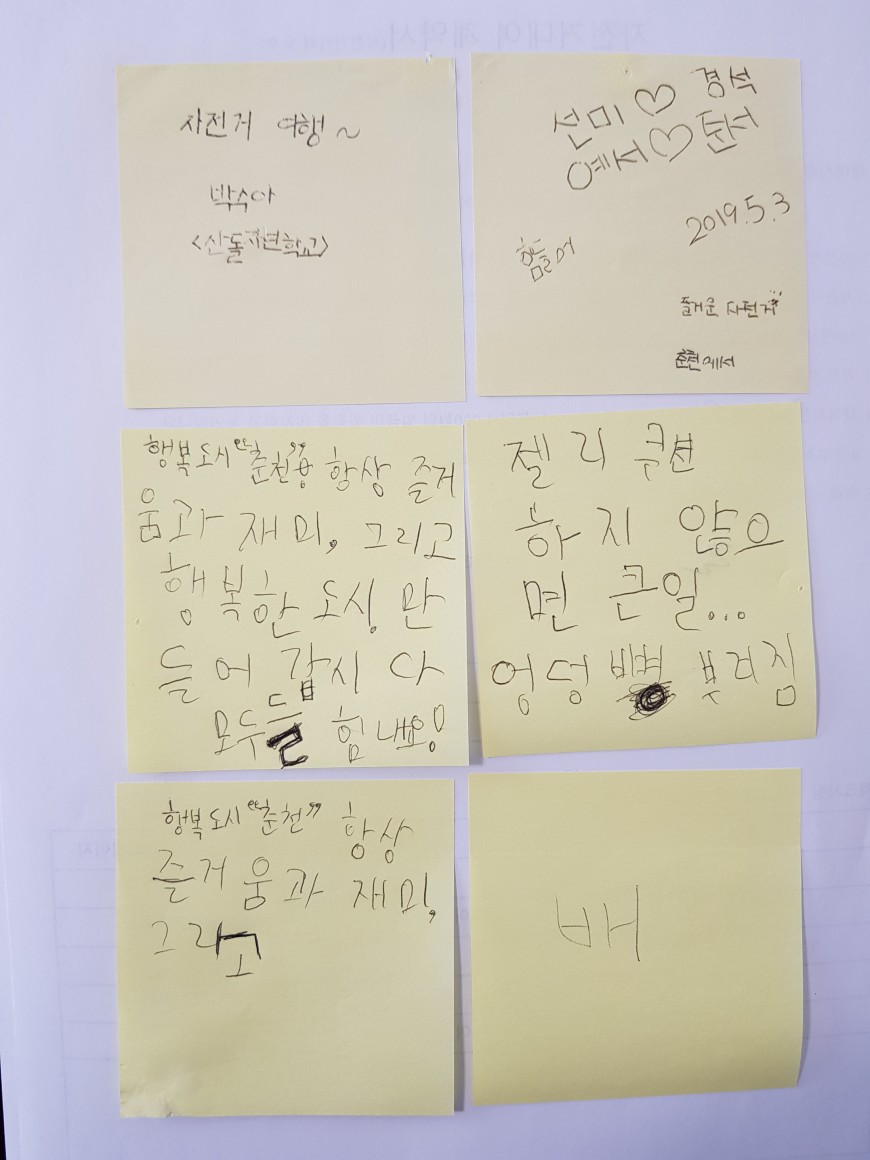 자전거 여행~
박수아
<산돌자연학교>
선미♡경석
예서♡준서
2019.5.3
힘들어
즐거운 자전거
춘천에서
행복도시 "춘천" 항상 즐거
움과 재미, 그리고
행복한 도시! 만
들어 갑시다
모두들 힘내요!
젤리 쿠션
하지 않으
면 큰일...
엉덩 뼈 부러짐
행복도시 "춘천" 항상
즐거움과 재미,
그리고
배